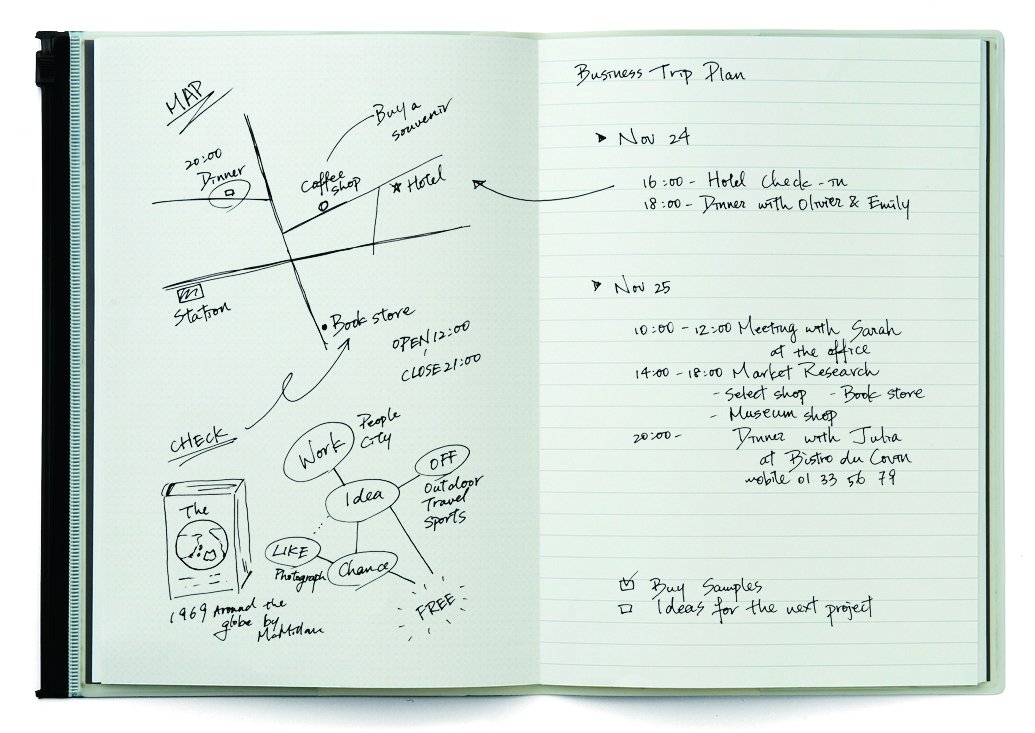 MAP
20:00
Dinner
Buy a
souvenir
Coffee
shop
Hotel
Station
Book store
OPEN 12:00
CLOSE 21:00
CHECK
The
1969 Around the
globe by
Work
People
City
OFF
Outdoor
Travel
Sports
Idea
LIKE
Photograph
Chance
FREE
Business Trip Plan
Nov 24
16:00 - Hotel Check-in
18:00 - Dinner with Olivier & Emily
Nov 25
10:00 - 12:00 Meeting with Sarah
at the office
14:00 - 18:00 Market Research
- Select shop - Book store
- Museum shop
20:00 - Dinner with Julia
at Bistro du
mobile 01 33 56 79
Buy Samples
Ideas for the next project